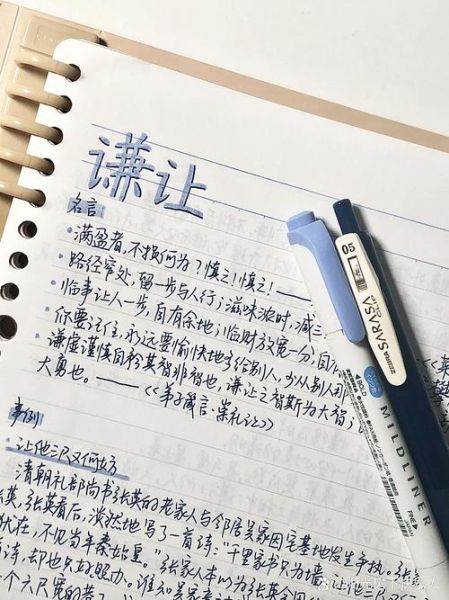 谦让
名言
·满盈者,不损何为?慎之!慎之!——
·路径窄处,留一步与人行;滋味浓时,减三
·临事让人一步,自有余地;临财放宽一分,自
·你要记住,永远要愉快地多给别人,少从别人那
·谦虚谨慎自矜其智非智也,谦让之智斯为大智;
大勇也。——《弟子箴言·崇礼让》
事例
·让他三尺又何妨
清朝礼部尚书张英的老家人与邻居吴家因宅基地发生争执。张
英,张英看后,淡然地写了一首诗:“千里家书只为墙,让他三尺
犹在,不见当年秦始皇。”张家人本以为张英会
诗,却也只好服办。谁知吴家
个六尺宽的巷
05
SARASA
ZEBRA
MILDLINER